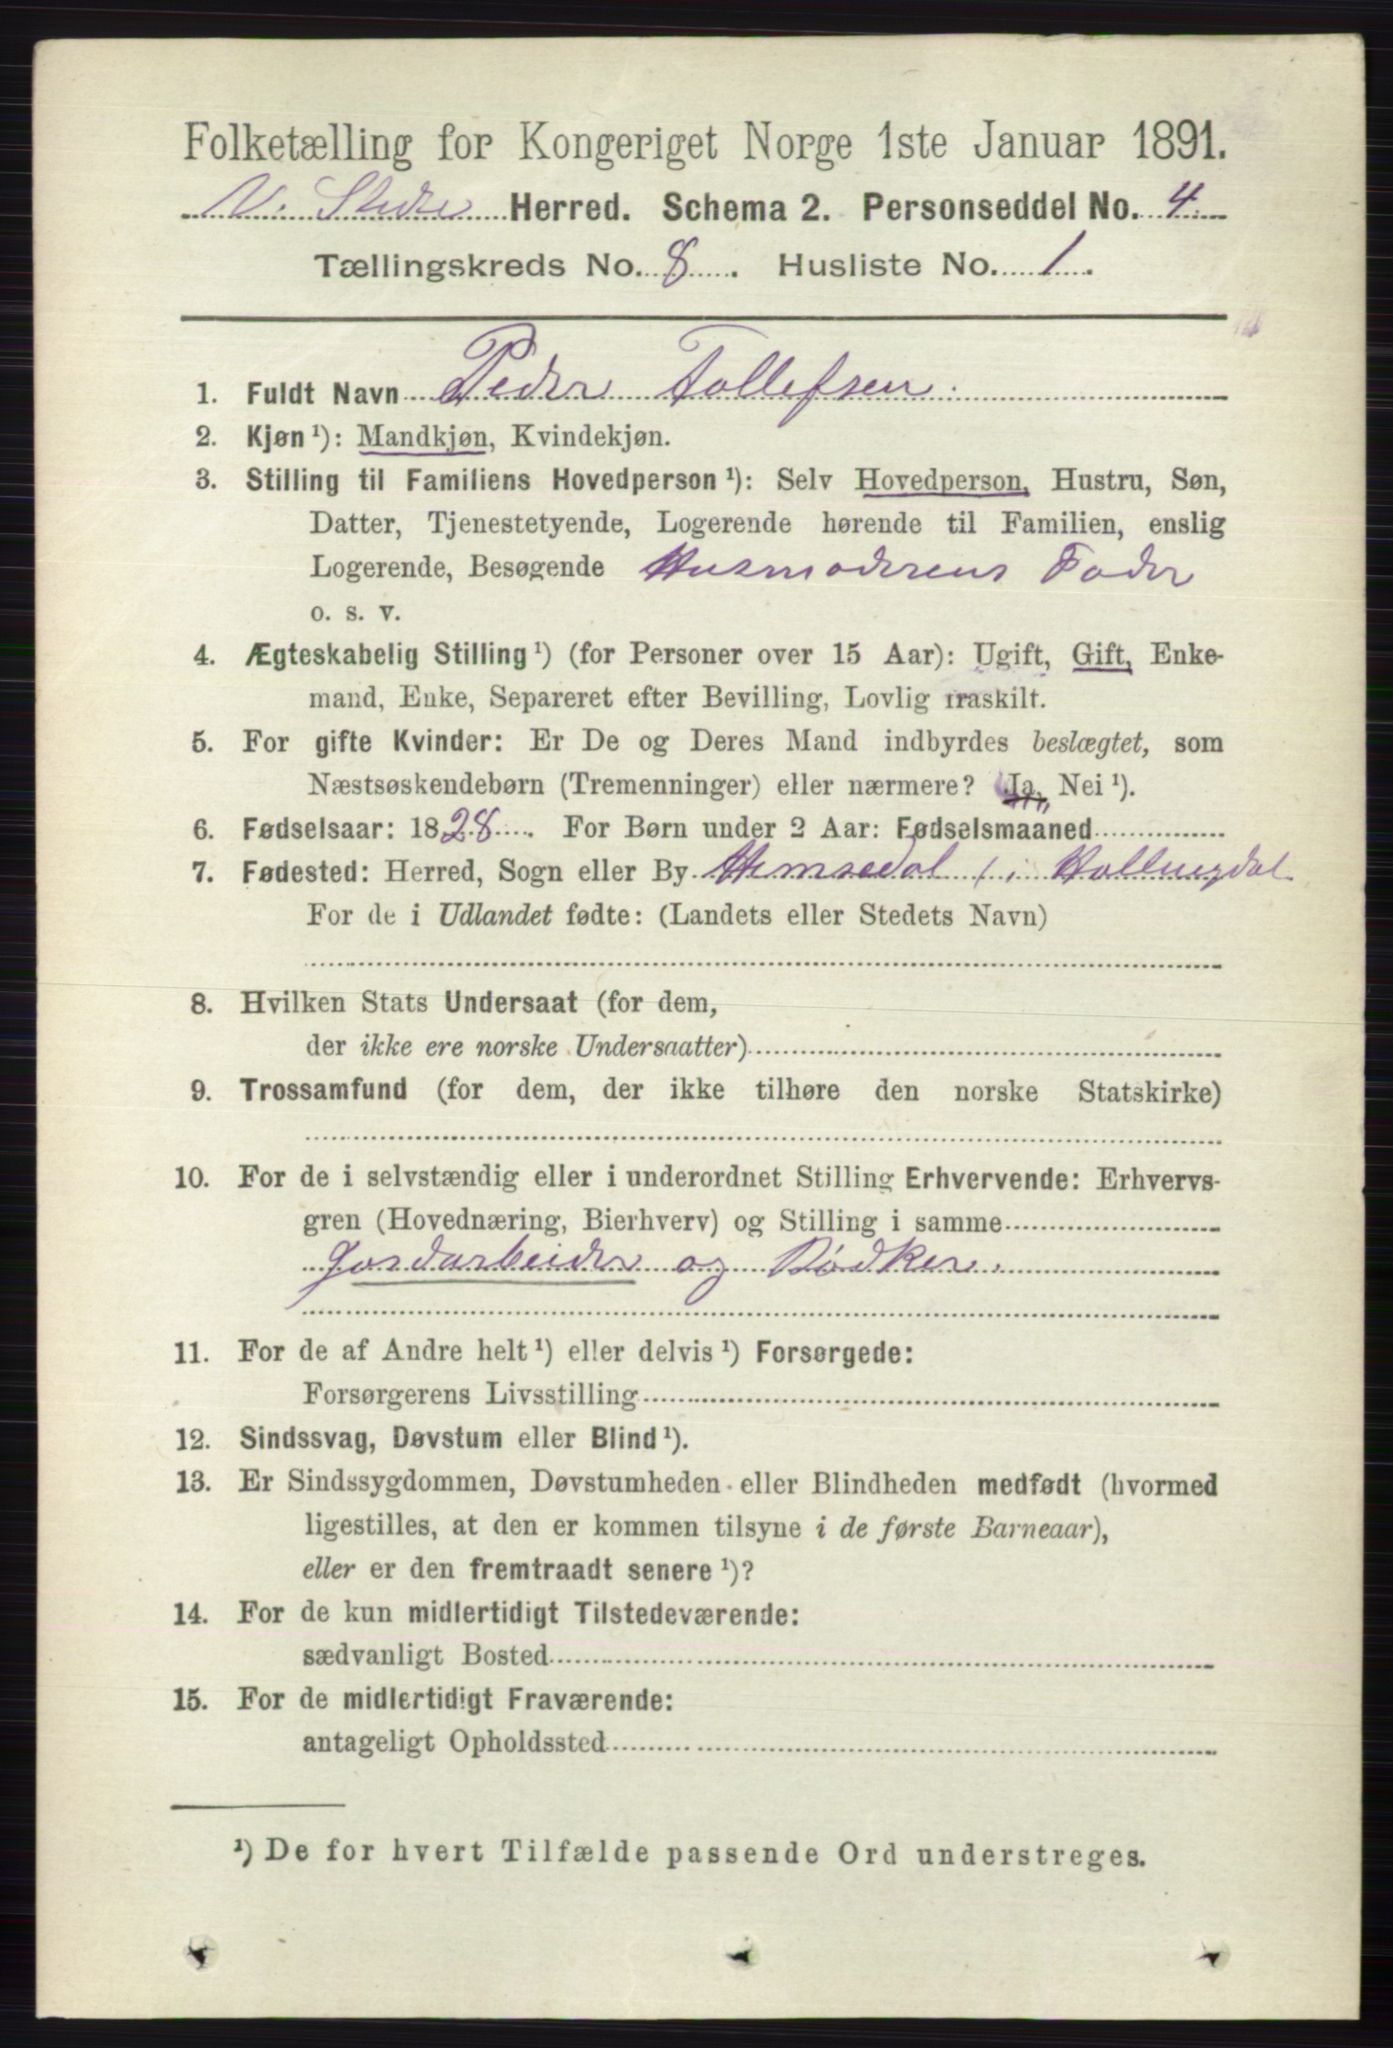 Folketælling for Kongeriget Norge 1ste Januar 1891.
V. Slidre Herred. Schema 2. Personseddel No. 4.
Tællingskreds No. 8. Husliste No. 1.
1. Fuldt Navn Peder Tollefsen.
2. Kjøn¹): Mandkjøn, Kvindekjøn.
3. Stilling til Familiens Hovedperson¹): Selv Hovedperson, Hustru, Søn,
Datter, Tjenestetyende, Logerende hørende til Familien, enslig
Logerende, Besøgende Husmoderens Fader
o. s. v.
4. Ægteskabelig Stilling¹) (for Personer over 15 Aar): Ugift, Gift, Enke-
mand, Enke, Separeret efter Bevilling, Lovlig fraskilt.
5. For gifte Kvinder: Er De og Deres Mand indbyrdes beslægtet, som
Næstsøskendebørn (Tremenninger) eller nærmere? Ja, Nei¹).
6. Fødselsaar: 1828. For Børn under 2 Aar: Fødselsmaaned
7. Fødested: Herred, Sogn eller By Hemsedal i Hallingdal
For de i Udlandet fødte: (Landets eller Stedets Navn)
8. Hvilken Stats Undersaat (for dem,
der ikke ere norske Undersaatter)
9. Trossamfund (for dem, der ikke tilhøre den norske Statskirke)
10. For de i selvstændig eller i underordnet Stilling Erhvervende: Erhvervs-
gren (Hovednæring, Bierhverv) og Stilling i samme
Jordarbeider og Bødker.
11. For de af Andre helt¹) eller delvis¹) Forsørgede:
Forsørgerens Livsstilling
12. Sindssvag, Døvstum eller Blind¹).
13. Er Sindssygdommen, Døvstumheden eller Blindheden medfødt (hvormed
ligestilles, at den er kommen tilsyne i de første Barneaar),
eller er den fremtraadt senere¹)?
14. For de kun midlertidigt Tilstedeværende:
sædvanligt Bosted
15. For de midlertidigt Fraværende:
antageligt Opholdssted
¹) De for hvert Tilfælde passende Ord understreges.